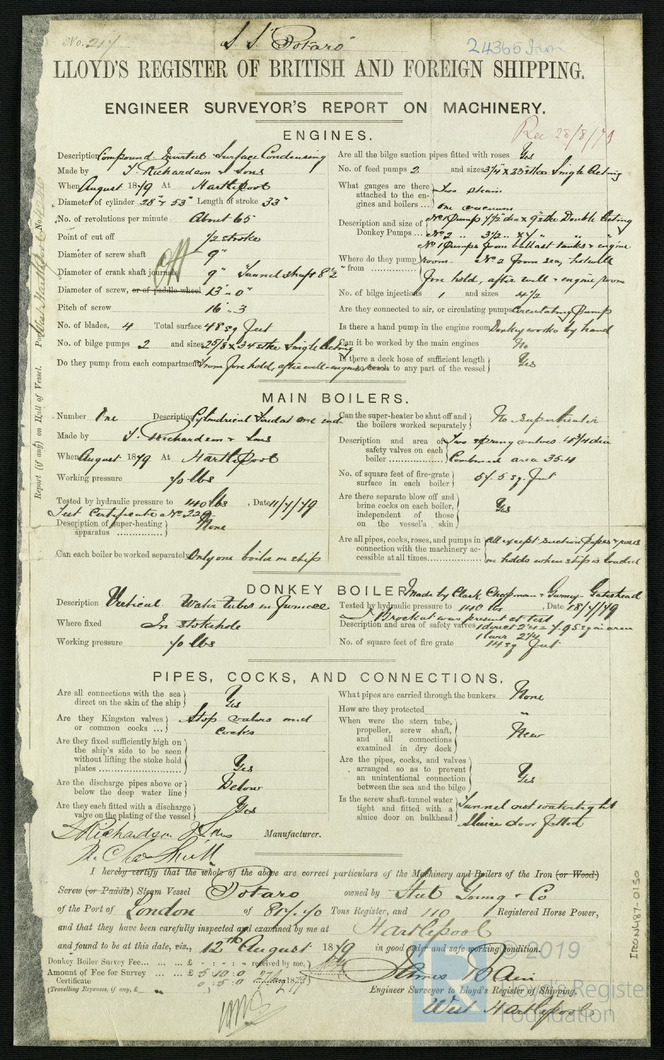 No. 217
S S "Potaro"
24365 Iron
LLOYD'S REGISTER OF BRITISH AND FOREIGN SHIPPING.
ENGINEER SURVEYOR'S REPORT ON MACHINERY.
Rec 28/8/79
ENGINES.
Description Compound Inverted Surface Condensing
Made by T. Richardson & Sons
When August 1879 At Hartlepool
Diameter of cylinder 28" & 53" Length of stroke 33"
No. of revolutions per minute About 65
Point of cut off 1/2 stroke
Diameter of screw shaft 9"
Diameter of crank shaft journals 9" Tunnel shaft 8 1/2"
Diameter of screw, or of paddle wheel 13'-0"
Pitch of screw 16-3
No. of blades, 4 Total surface 48 sq feet
No. of bilge pumps 2 and sizes 2 5/8 x 34 stke Single Acting
Do they pump from each compartment from fore hold, after well - engine room
Are all the bilge suction pipes fitted with roses Yes
No. of feed pumps 2 and sizes Single Acting
What gauges are there attached to the engines and boilers ... Two steam
one vacuum
Description and size of Donkey Pumps ... No 1 Pump 9" stke Double Acting
No 2
Where do they pump from ... No 1 Pumps from ballast tanks & engine
room. No 2 from sea, hotwell
fore hold, after well & engine room
No. of bilge injections 1 and sizes 4 1/2
Are they connected to air, or circulating pumps Circulating Pump
Is there a hand pump in the engine room Donkey works by hand
Can it be worked by the main engines No
Is there a deck hose of sufficient length to any part of the vessel Yes
Report (if any) on Hull of Vessel.
MAIN BOILERS.
Number One Description Cylindrical Horizl one end
Made by T. Richardson & Sons
When August 1879 At Hartlepool
Working pressure 70 lbs
Tested by hydraulic pressure to 140 lbs, Date 11/7/79
Test Certificate No 229
Description of super-heating apparatus ... None
Can each boiler be worked separately Only one boiler in ship
Can the super-heater be shut off and the boilers worked separately No Superheater
Description and area of safety valves on each boiler ... Two spring valves 4 3/4 dia
Combined area 35.4
No. of square feet of fire-grate surface in each boiler ... 54.5 sq feet
Are there separate blow off and brine cocks on each boiler, independent of those on the vessel's skin Yes
Are all pipes, cocks, roses, and pumps in connection with the machinery accessible at all times. All except suction pipes & roses
in holds when ship is loaded
DONKEY BOILER. Made by Clark Chapman & Gurney Gateshead
Description Vertical Water tubes in furnace
Where fixed In stokehole
Working pressure 70 lbs
Tested by hydraulic pressure to 140 lbs, Date 18/7/79
J Brockat was present at test
Description and area of safety valves 1 direct 2 1/4 = 7.95 sq in area
1 lever 2 1/4
No. of square feet of fire grate 14 sq feet
PIPES, COCKS, AND CONNECTIONS.
Are all connections with the sea direct on the skin of the ship Yes
Are they Kingston valves or common cocks ... Stop valves and
cocks
Are they fixed sufficiently high on the ship's side to be seen without lifting the stoke hold plates ... Yes
Are the discharge pipes above or below the deep water line Below
Are they each fitted with a discharge valve on the plating of the vessel Yes
What pipes are carried through the bunkers None
How are they protected "
When were the stern tube, propeller, screw shaft, and all connections examined in dry dock New
Are the pipes, cocks, and valves arranged so as to prevent an unintentional connection between the sea and the bilge Yes
Is the screw shaft-tunnel water tight and fitted with a sluice door on bulkhead Tunnel not watertight
Sluice door fitted
T Richardson & Sons Manufacturer.
I hereby certify that the whole of the above are correct particulars of the Machinery and Boilers of the Iron (or Wood)
Screw (or Paddle) Steam Vessel Potaro owned by Steel Young & Co
of the Port of London of 817.70 Tons Register, and 110 Registered Horse Power,
and that they have been carefully inspected and examined by me at Hartlepool
and found to be at this date, viz., 12th August 1879 in good order and safe working condition.
Donkey Boiler Survey Fee... £ : - : - received by me,
Amount of Fee for Survey £ 5.10.0
Certificate 0.5.0
(Travelling Expenses, if any, £
James Bain
Engineer Surveyor to Lloyd's Register of Shipping.
West Hartlepool
IRON487-0150
© 2019
Lloyd's Register
Foundation